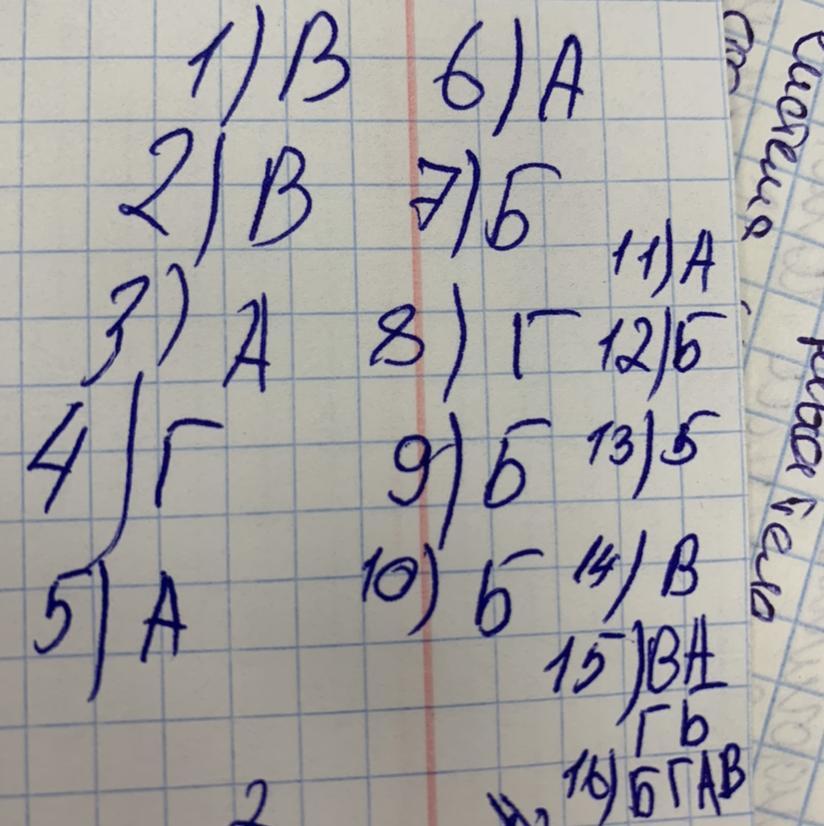 1) В
2) В
3) А
4) Г
5) А
6) А
7) Б
8) Г
9) Б
10) Б
11) А
12) Б
13) Б
14) В
15) ВА
ГБ
16) БГАВ
2